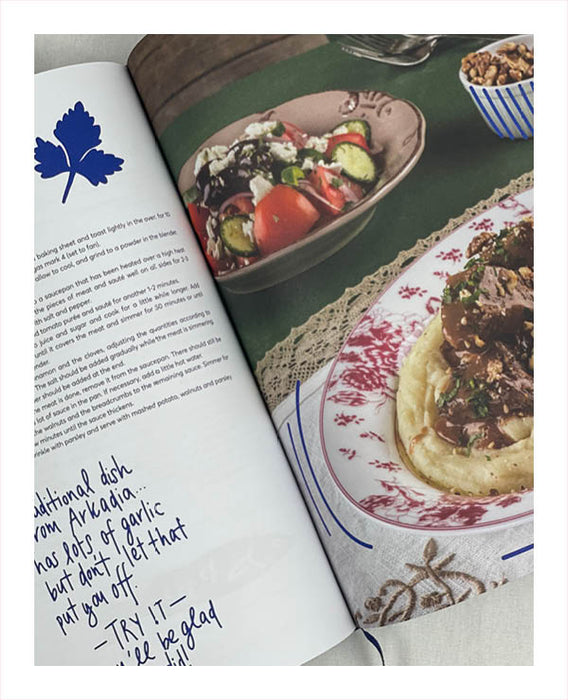 baking sheet and toast lightly in the oven for 10
gas mark 4 (set to fan).
allow to cool, and grind to a powder in the blender
a saucepan that has been heated over a high heat
the pieces of meat and sauté well on all sides for 2-3
with salt and pepper.
tomato purée and sauté for another 1-2 minutes.
juice and sugar and cook for a little while longer. Add
until it covers the meat and simmer for 50 minutes or until
and the cloves, adjusting the quantities according to
The salt should be added gradually while the meat is simmering
should be added at the end.
meat is done, remove it from the saucepan. There should still be
lot of sauce in the pan. If necessary, add a little hot water.
the walnuts and the breadcrumbs to the remaining sauce. Simmer for
minutes until the sauce thickens.
with parsley and serve with mashed potato, walnuts and parsley
dish
Arkadia...
has lots of garlic
but don't let that
put you off.
– TRY IT –
be glad